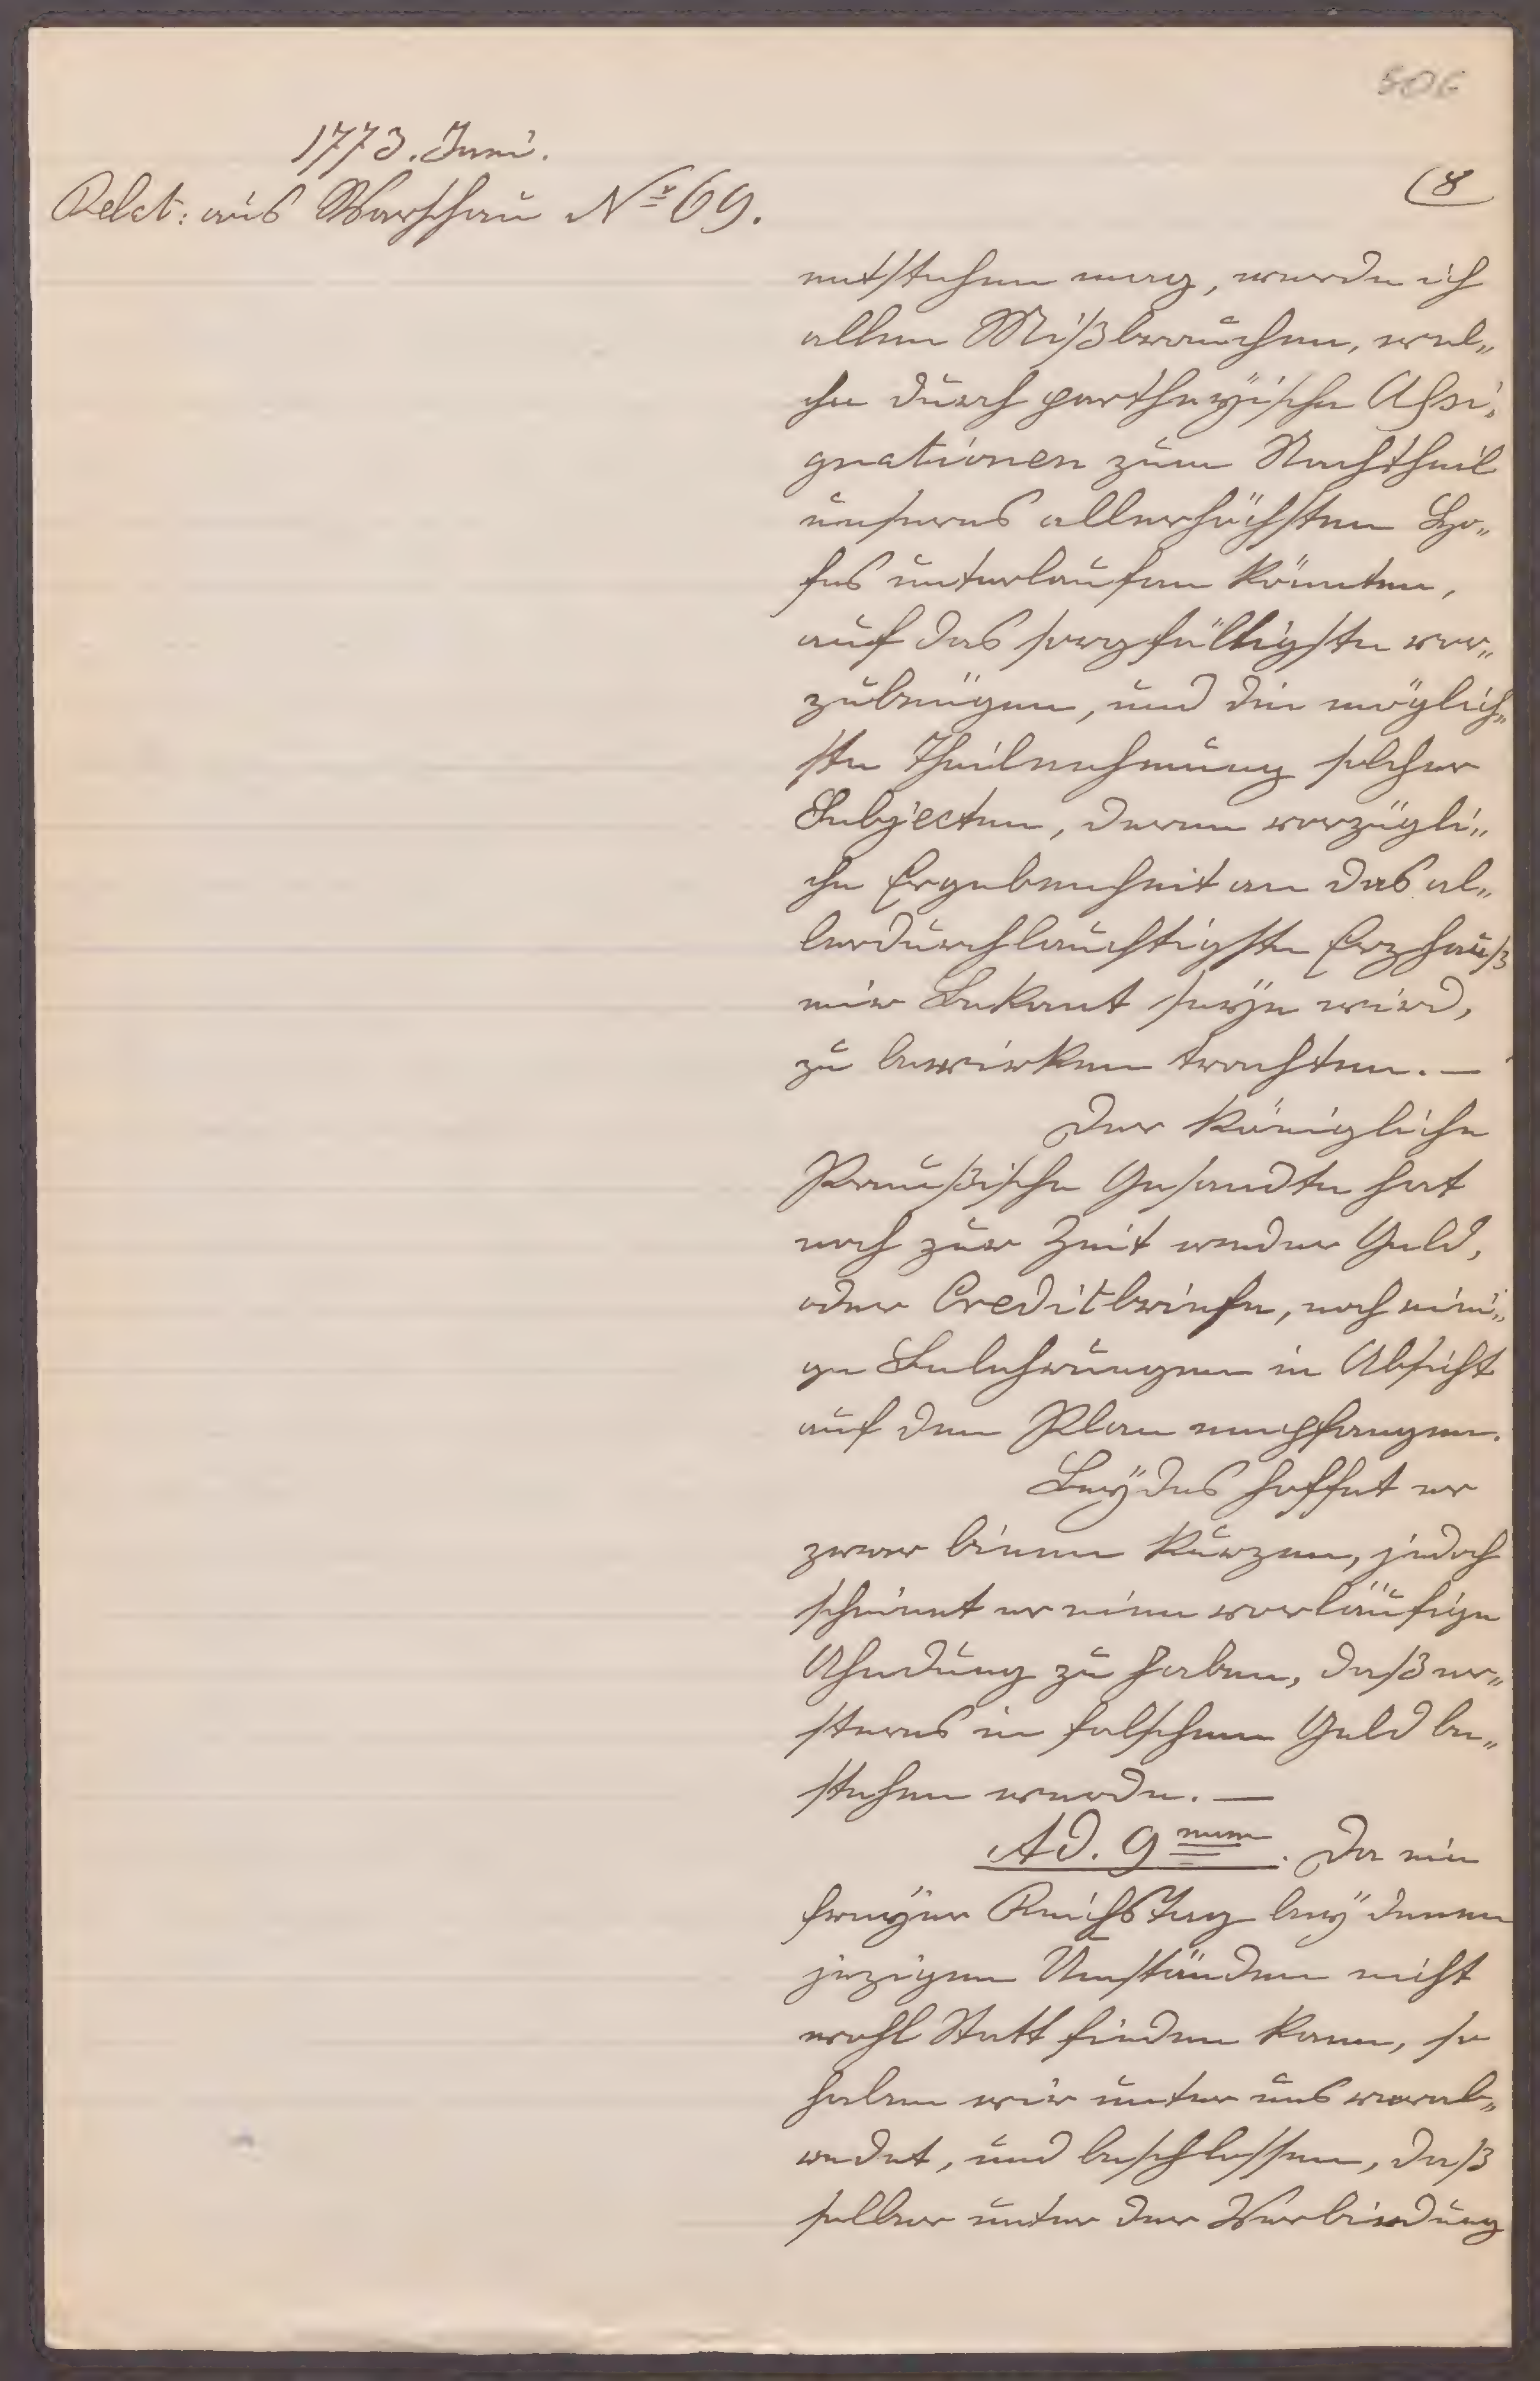 506
1773. Juni.
Relat: aus Warschau Nr 69.
(8
entstehen mag, werde ich
allen Mißbrauchen, wel„
che durch partheyische Assi„
gnationen zum Nachtheil
unseres allerhöchsten Ho„
fes unterlaufen könnten,
auf das sorgfältigste vor„
zubeugen, und die möglich„
ste Theilnehmung solcher
Subjecten, deren vorzügli„
che Ergebenheit an das al„
lerdurchlauchtigste Erzhauß
mir bekant seyn wird,
zu bewirken trachten. —
Der Königliche
Preußische Gesandte hat
noch zur Zeit weder Geld,
oder Creditbriefe, noch eini„
ge Belehrungen in Absicht
auf den Plan empfangen.
Beydes hoffet er
zwar binen Kurzen, jedoch
scheinet er eine vorläufige
Ahndung zu haben, daß er„
steres in falschem Geld be„
stehen werde. —
Ad. 9num. Da ein
freyer ReichsTag bey denen
jezigen Umständen nicht
wohl Statt finden kann, so
haben wir unter uns verab„
redet, und beschlossen, daß
selber unter der Verbindung